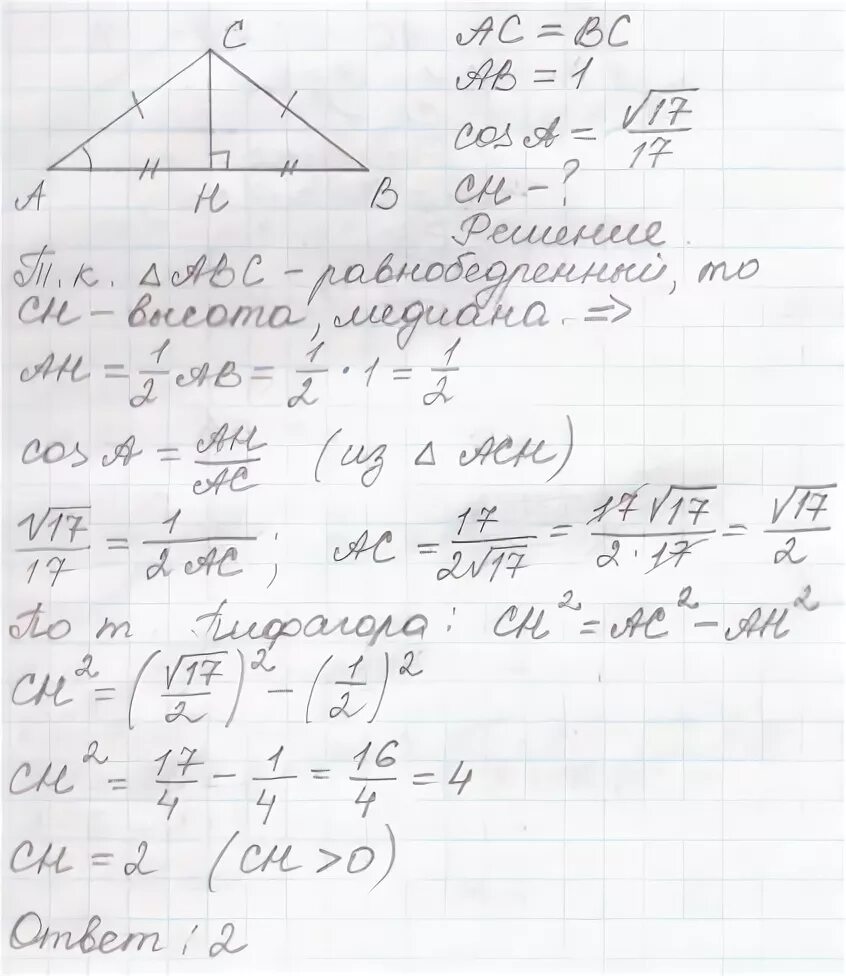 C
A H B
AC = BC
AB = 1
cos A = √17/17
CH - ?
Решение.
Т.к. △ABC - равнобедренный, то
CH - высота, медиана. =>
AH = 1/2 AB = 1/2 · 1 = 1/2
cos A = AH/AC (из △ ACH)
√17/17 = 1/2AC ; AC = 17/2√17 = 17√17/2·17 = √17/2
По т Пифагора: CH² = AC² - AH²
CH² = (√17/2)² - (1/2)²
CH² = 17/4 - 1/4 = 16/4 = 4
CH = 2 (CH > 0)
Ответ: 2